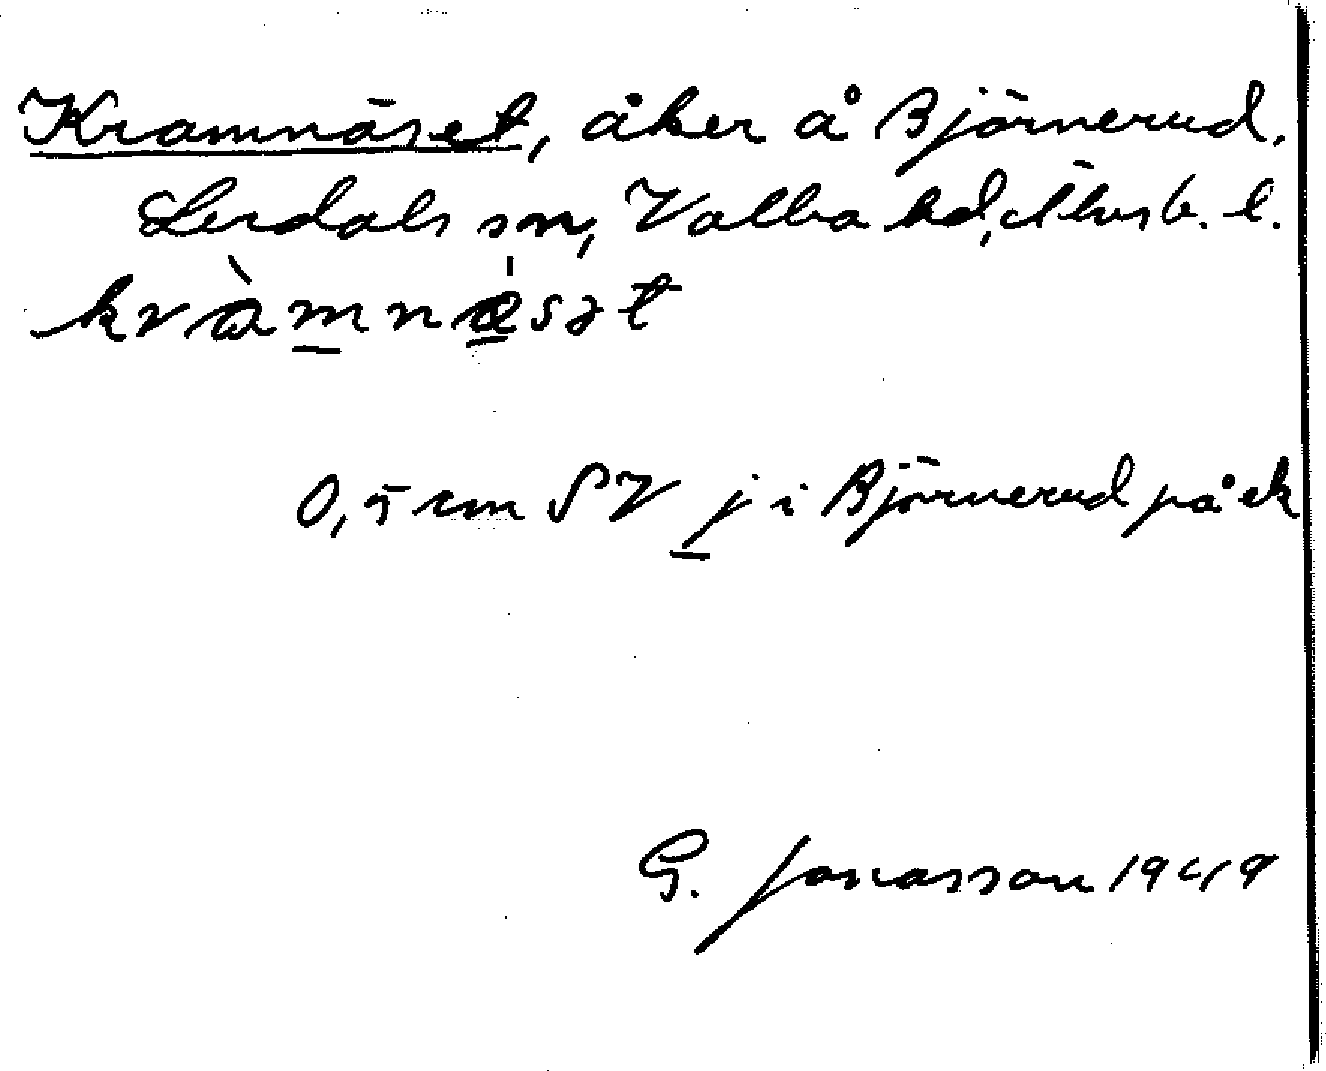 Kramnäset, åker å Björnerud,
Lerdals sn, Valbo hd, Älvsb. l.
kràmnæsət
0,5 cm SV j i Björnerud på ek
G. Jonasson 1949